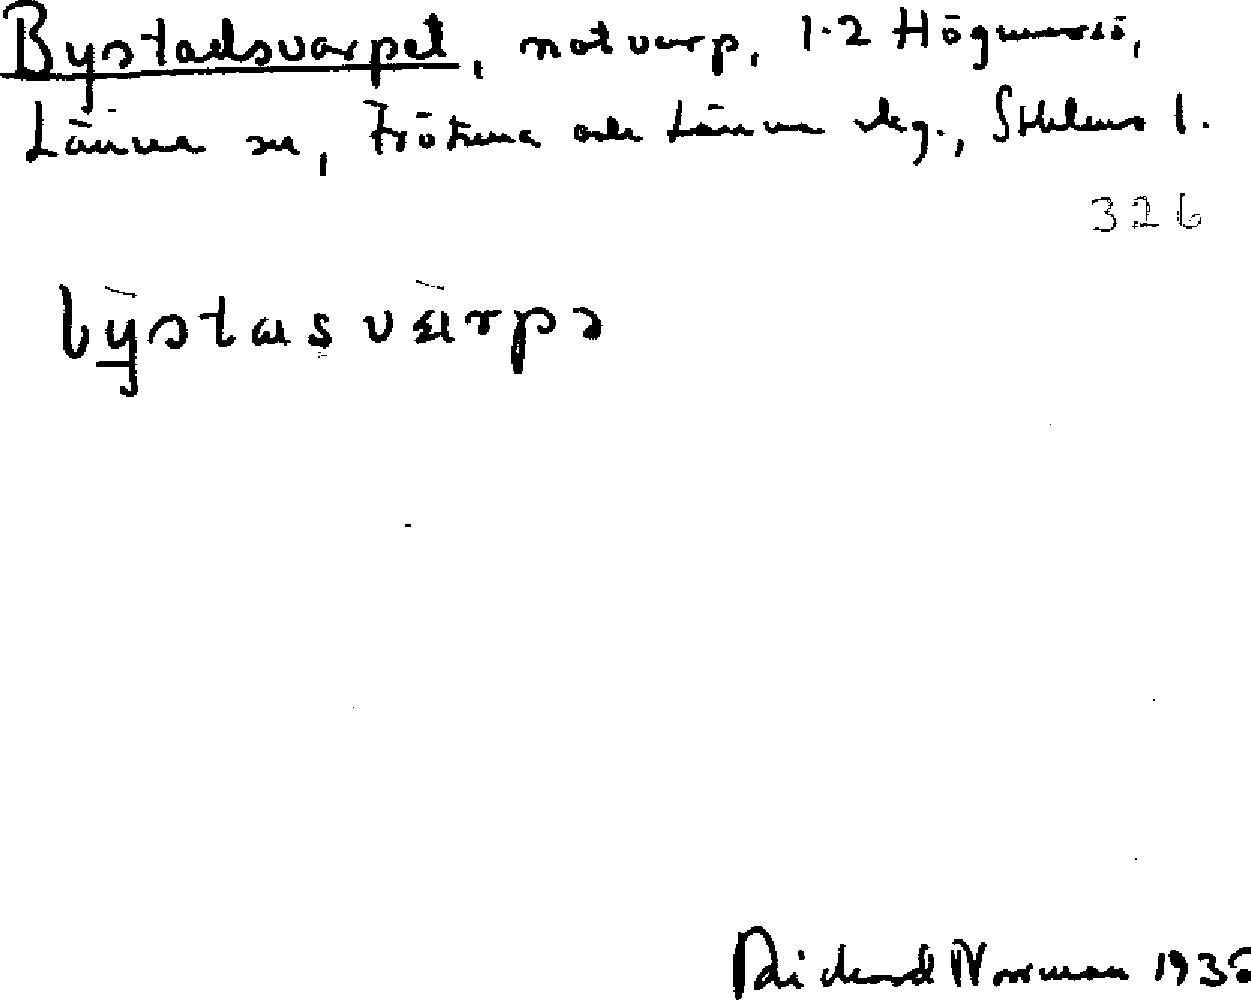 Bystadsvarpet, notvarp, 1-2 Högmarsö,
Länna sn, Frötuna och Länna skg., Sthlms l.
326
bystas varpə
Rickard Norrman 1936